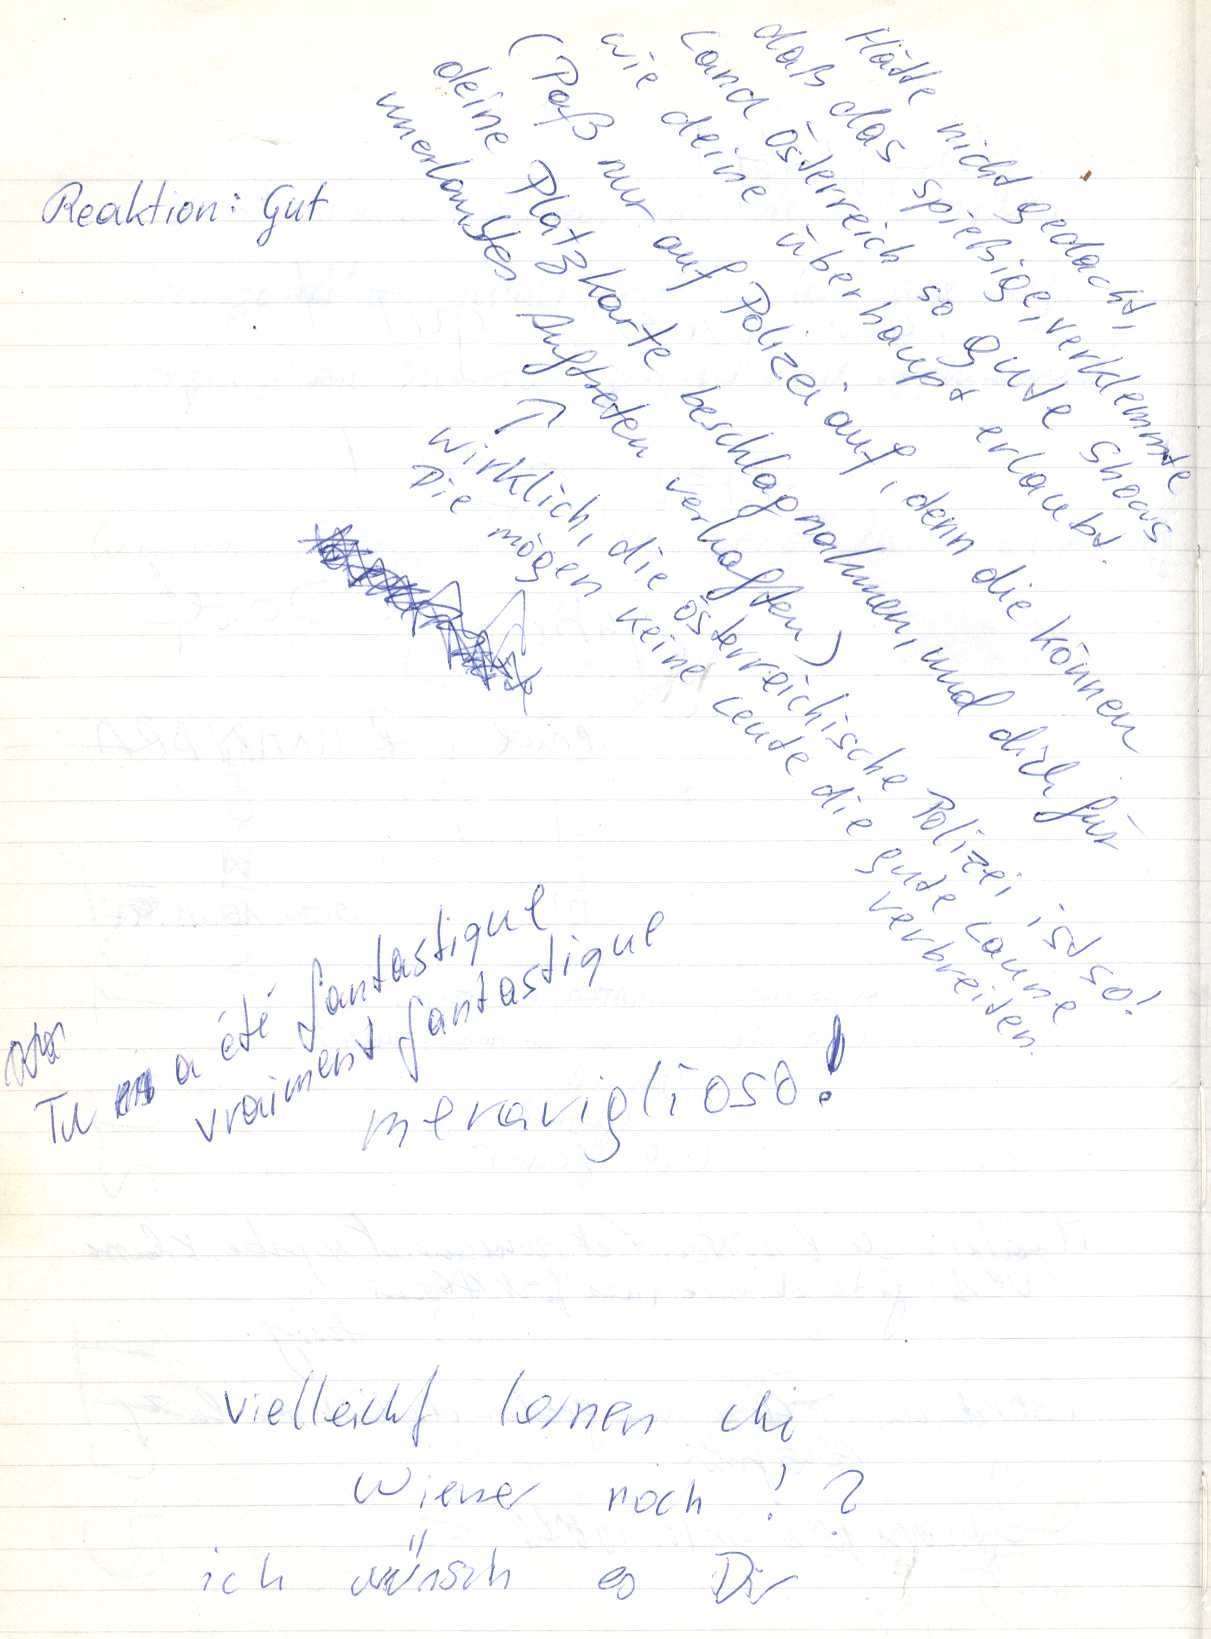 Reaktion: Gut
Hätte nicht gedacht,
daß das spießige, verklemmte
Land Österreich so gute Shows
wie deine überhaupt erlaubt.
(Paß nur auf Polizei auf, denn die können
deine Platzkarte beschlagnahmen, und dich für
unerlaubtes Auftreten verhaften)
↑
Wirklich, die österreichische Polizei ist so!
Die mögen keine Leute die gute Laune
verbreiten.
Tu a été fantastique
vraiment fantastique
meraviglioso!
vielleicht lernen die
Wiener noch!?
ich wünsch es Dir